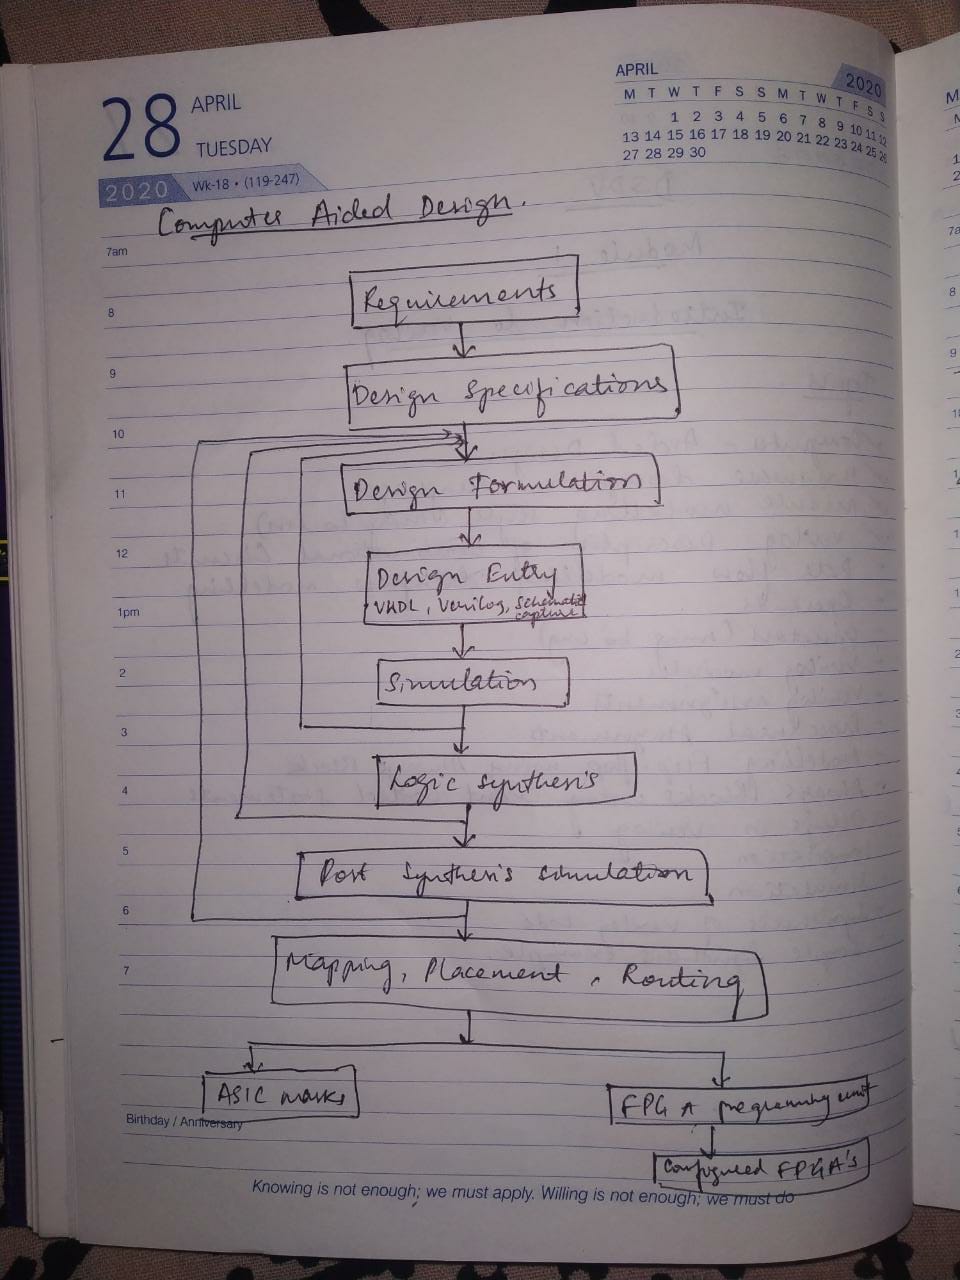 28 APRIL
TUESDAY
2020 Wk-18 • (119-247)
APRIL 2020
M T W T F S S M T W T F S S
1 2 3 4 5 6 7 8 9 10 11 12
13 14 15 16 17 18 19 20 21 22 23 24 25 26
27 28 29 30
Computer Aided Design.
7am
Requirements
8
9
Design Specifications
10
Design Formulation
11
12
Design Entry
VHDL, Verilog, Schematic
capture
1pm
2
Simulation
3
Logic synthesis
4
5
Post Synthesis simulation
6
Mapping, Placement, Routing
7
ASIC masks
FPGA programming unit
Birthday / Anniversary
Configured FPGA's
Knowing is not enough; we must apply. Willing is not enough; we must do